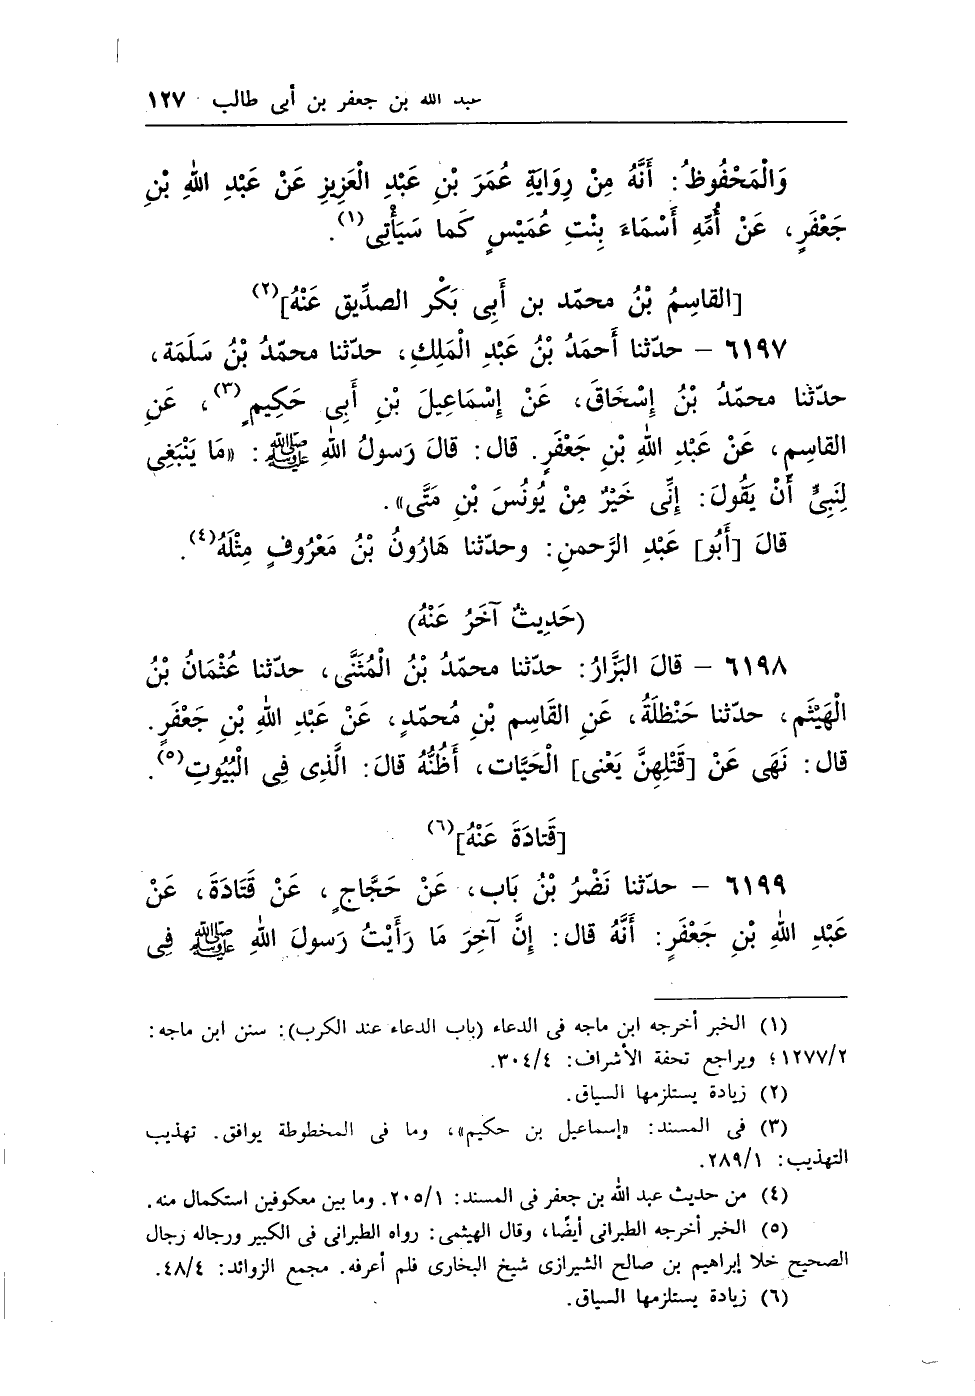 عبد الله بن جعفر بن أبى طالب ١٢٧
وَالْمَحْفُوظُ: أَنَّهُ مِنْ رِوَايَةِ عُمَرَ بْنِ عَبْدِ الْعَزِيزِ عَنْ عَبْدِ اللهِ بْنِ
جَعْفَرٍ، عَنْ أُمِّهِ أَسْمَاءَ بِنْتِ عُمَيْسٍ كَما سَيَأْتِى(١).
[القاسِمُ بْنُ محمّد بن أَبِى بَكْر الصدِّيق عَنْهُ](٢)
٦١٩٧ – حدّثنا أَحمَدُ بْنُ عَبْدِ الْمَلِكِ، حدّثنا محمّدُ بْنُ سَلَمَة،
حدّثنا محمّدُ بْنُ إِسْحَاقَ، عَنْ إِسْمَاعِيلَ بْنِ أَبِى حَكِيمٍ(٣)، عَنِ
القاسِمِ، عَنْ عَبْدِ اللهِ بْنِ جَعْفَرٍ. قال: قَالَ رَسولُ اللهِ ﷺ: «مَا يَنْبَغِى
لِنَبِىٍّ أَنْ يَقُولَ: إِنِّى خَيْرٌ مِنْ يُونُسَ بْنِ مَتَّى».
قالَ [أَبُو] عَبْدِ الرَّحمنِ: وحدّثنا هَارُونُ بْنُ مَعْرُوفٍ مِثْلَهُ(٤).
(حَدِيثٌ آخَرُ عَنْهُ)
٦١٩٨ – قالَ البَزَّارُ: حدّثنا محمّدُ بْنُ الْمُثَنَّى، حدّثنا عُثْمَانُ بْنُ
الْهَيْثَمِ، حدّثنا حَنْظلَةُ، عَنِ القَاسِمِ بْنِ مُحمّدٍ، عَنْ عَبْدِ اللهِ بْنِ جَعْفَرٍ.
قال: نَهَى عَنْ [قَتْلِهِنَّ يَعْنى] الْحَيَّات، أَظُنُّهُ قالَ: الَّذِى فِى الْبُيُوتِ(٥).
[قَتادَةَ عَنْهُ](٦)
٦١٩٩ – حدّثنا نَصْرُ بْنُ بَاب، عَنْ حَجَّاجٍ، عَنْ قَتَادَةَ، عَنْ
عَبْدِ اللهِ بْنِ جَعْفَرٍ: أَنَّهُ قالَ: إِنَّ آخِرَ مَا رَأَيْتُ رَسولَ اللهِ ﷺ فِى
(١) الخبر أخرجه ابن ماجه فى الدعاء (باب الدعاء عند الكرب): سنن ابن ماجه:
١٢٧٧/٢؛ ويراجع تحفة الأشراف: ٣٠٤/٤.
(٢) زيادة يستلزمها السياق.
(٣) فى المسند: «إسماعيل بن حكيم»، وما فى المخطوطة يوافق. تهذيب
التهذيب: ٢٨٩/١.
(٤) من حديث عبد الله بن جعفر فى المسند: ٢٠٥/١. وما بين معكوفين استكمال منه.
(٥) الخبر أخرجه الطبرانى أيضًا، وقال الهيثمى: رواه الطبرانى فى الكبير ورجاله رجال
الصحيح خلا إبراهيم بن صالح الشيرازى شيخ البخارى فلم أعرفه. مجمع الزوائد: ٤٨/٤.
(٦) زيادة يستلزمها السياق.